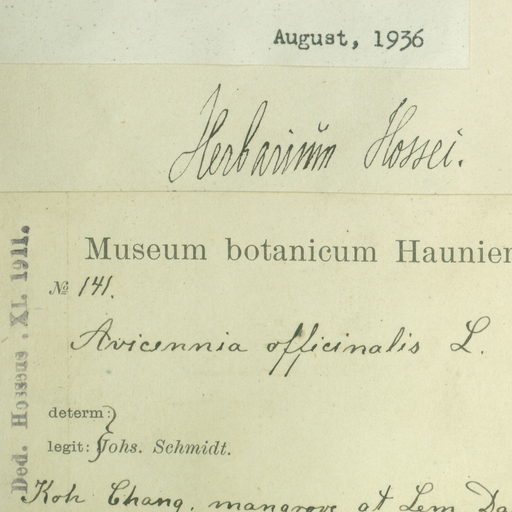 August, 1936
Herbarium Hossei.
Museum botanicum Haunien
№ 141.
Avicennia officinalis L.
determ:
legit: Johs. Schmidt.
Koh Chang, mangrove at Lem Da
Ded. Hosseus. XI. 1911.